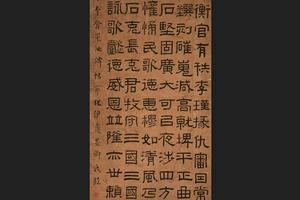 衡官有秩李瑾掾仇審因常
鐉刻磪嵬減高就埤平正曲
石堅固廣大可以夜涉四方
懽悀民歌德惠穆如清風乃
石克長克君牧守三國三國
詠歌懿德威恩並隆亦世賴